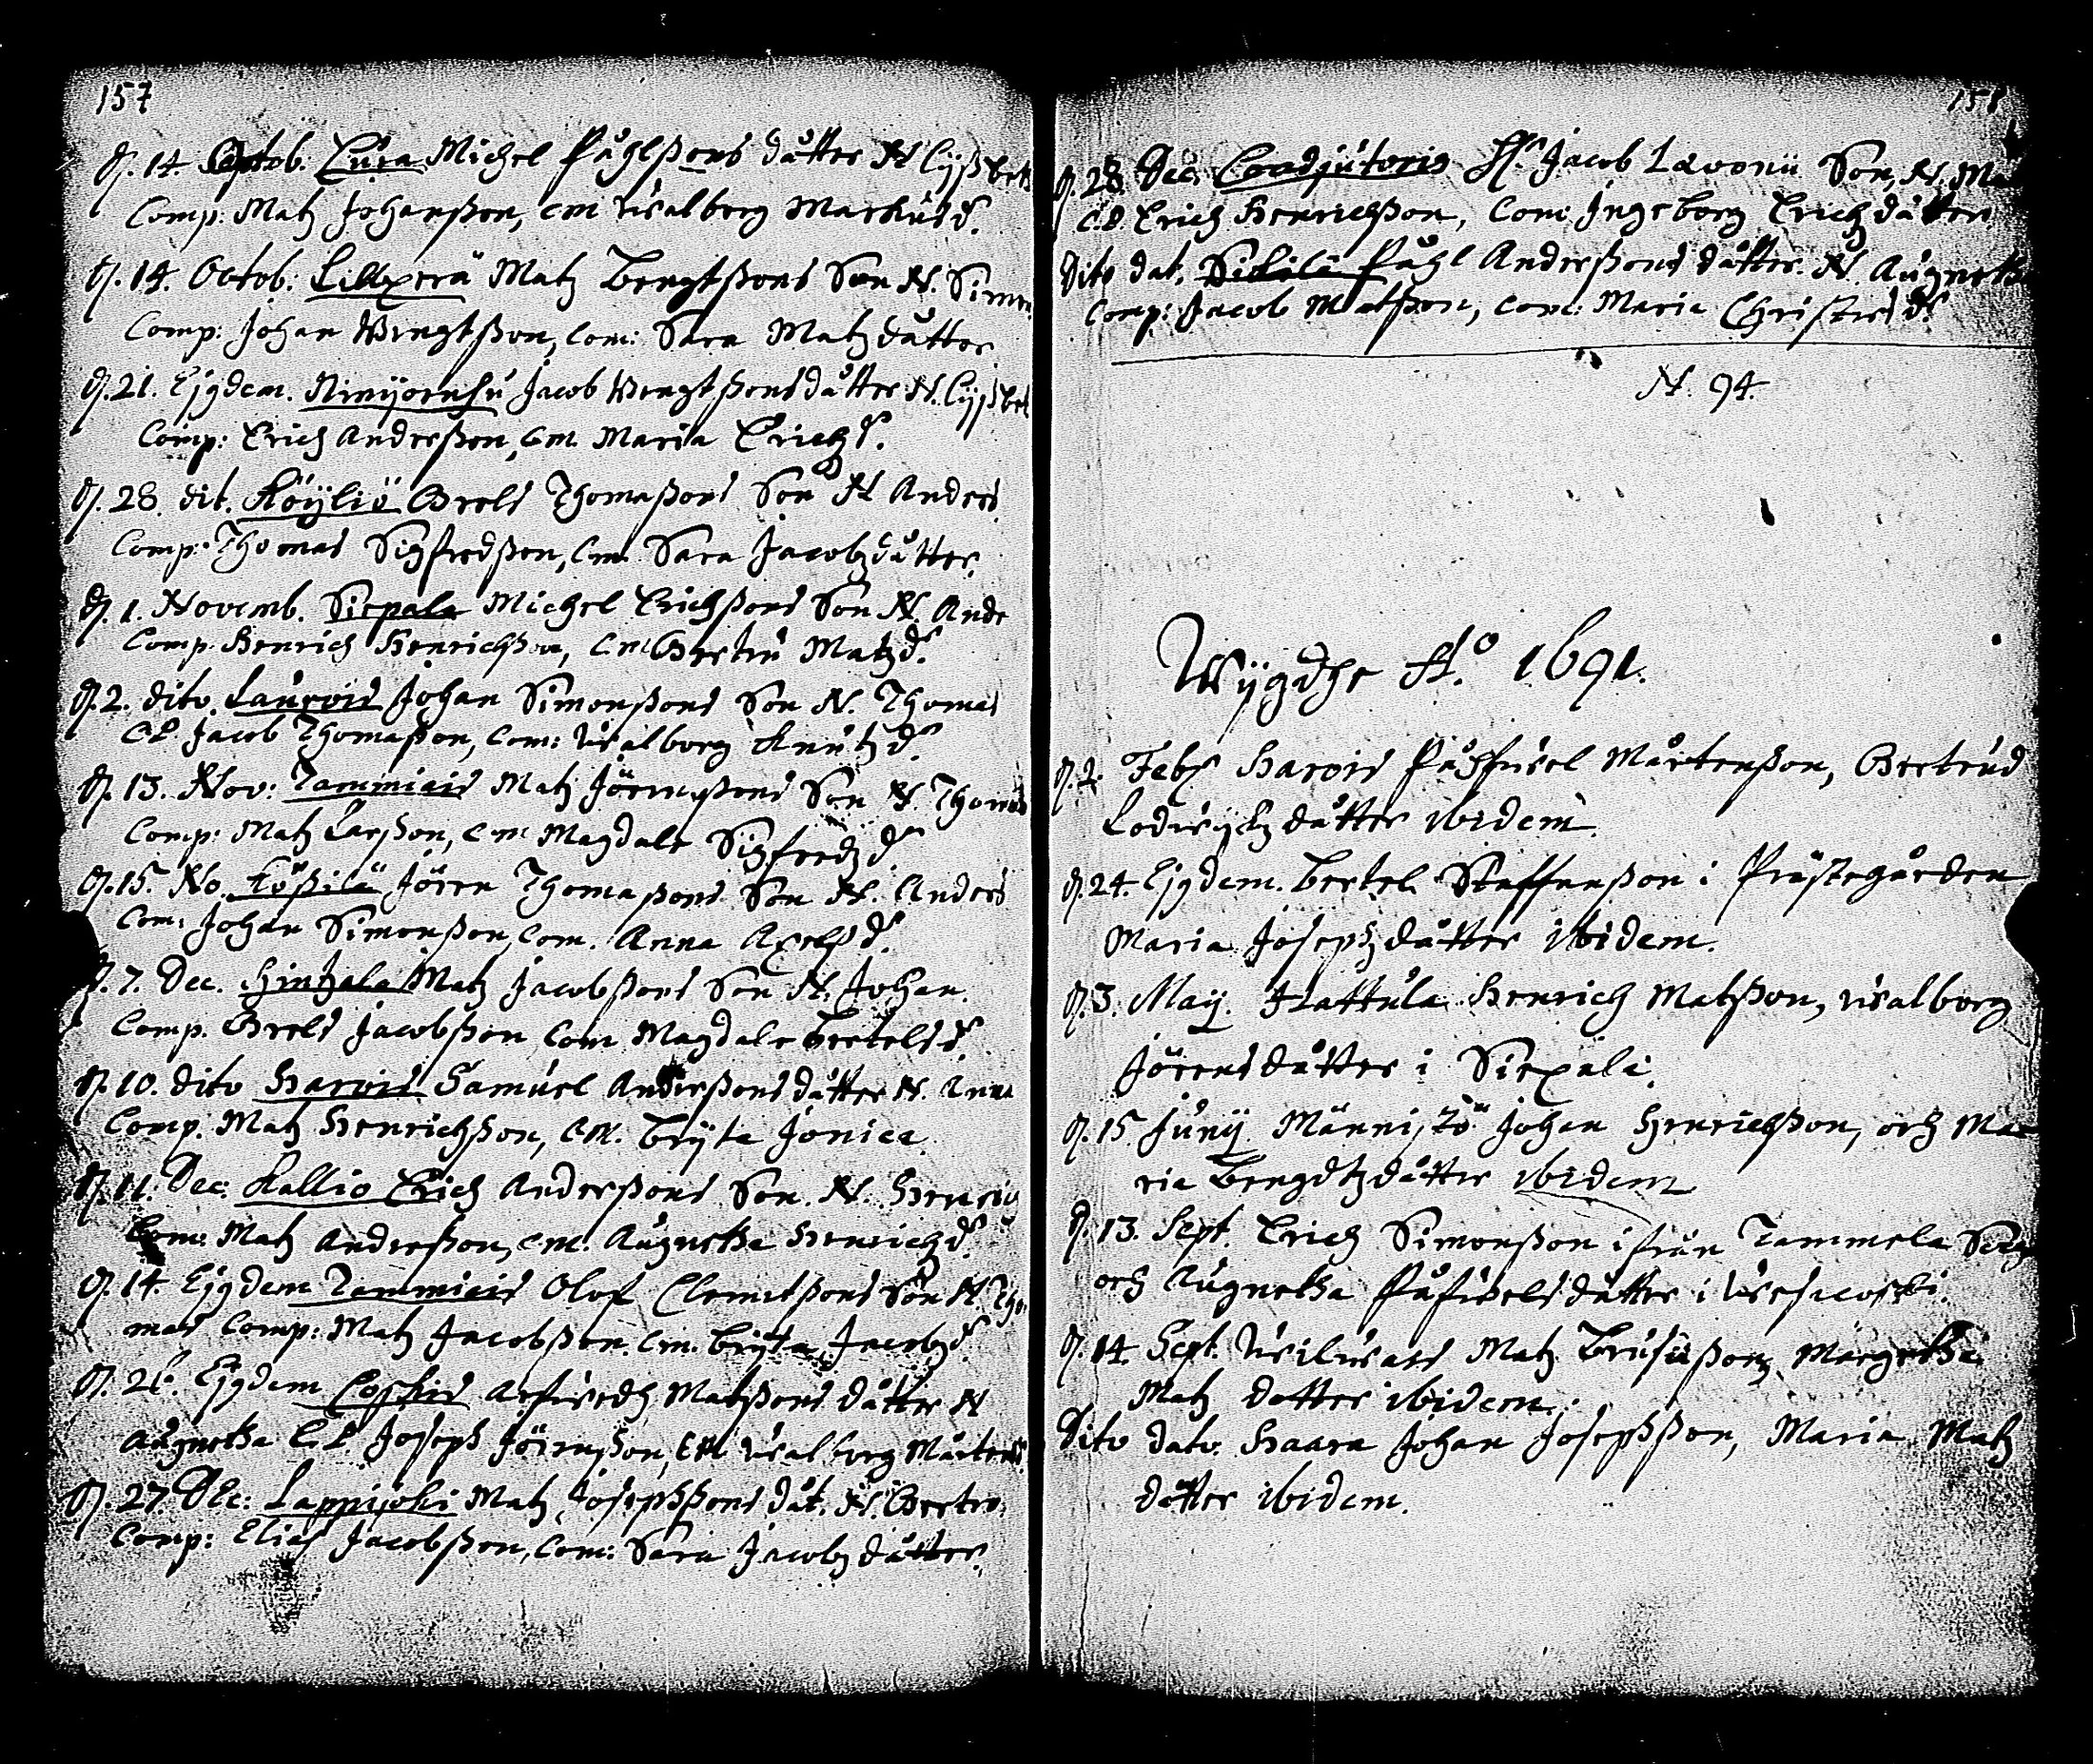 157
D. 14. Octob. Cura Michel Påhlßons dåtter N Lijßbet
Comp: Matz Johanßon, Cm Walborg Markusd.
D. 14. Octob: Lillperä Matz Bengtßons Son N. Simon
Comp: Johan Bengtßon, Com: Sara Matz dåtter
D. 21. Ejgdem. Jacob Bengtßons dåtter N. Lijßbet
Comp: Erich Andersson, Cm. Maria Erichz d.
D. 28. dit. Köyliö Grels Thomaßons Son N Anders
Comp: Thomas Sigfredßon, Cm. Sara Jacobz dåtter.
D. 1. Novemb. Siepala Michel Erichßons Son N. Ande
Comp. Henrich Henrichßon, Cm Gertru Matz d.
D. 2. dito. Laurois Johan Simonßons Son N. Thomas
CP Jacob Thomaßon, Com: Walborg Knutz d.
D. 13. Nov: Tammiais Matz Jörenßons Son N. Thomas
Comp: Matz Larßon, Cm Magdale Sigfredz d.
D. 15. No. Kößilä Jören Thomaßons Son N. Anders
Com: Johan Simonßon, Com. Anna Axelß d.
D. 7. Dec. Hintzala Matz Jacobßons Son N. Johan.
Comp. Grels Jacobßon Com Magdale Bertels d.
D. 10. dito Harois Samuel Anderßons dåtter N. Anna
Comp. Matz Henrichßon, CM. Bryta Jonica
D. 11. Dec: Kallio Erich Anderßons Son. N. Henric
Com: Matz Anderßon, Cm. Augnetha Henrichz d.
D. 14. Ejgdem Tammiais Olof Clemetßons Son N. Tho
mas Comp: Matz Jacobßon. Cm. Bryta Jacobz d.
D. 26. Ejgdem Coskis Arfwedh Matßons dåtter N
Augnetha C.P Joseph Jörenßon, CM Walborg Mårtens
D. 27. Dec: Lappijoki Matz Josephßons dåt. N. Gertru.
Comp: Elias Jacobßon, Com: Sara Jacobz dåtter.
158
D. 28. Dec. Coadjutoris H. Jacob Lævonii Son, N. Ma
C.P. Erich Henrichßon, Com: Ingeborg Erichz dåtter.
Dito dat. Sikilä Påhl Anderßons dåtter. N. Augnetha
Comp: Jacob Matßon, Com: Maria Christers d.
N. 94.
Wijgdhe A:o 1691.
D. 2. Feb. Harois Påhfwel Mårtenßon, Gertrud
Lodwijkz dåtter ibidem.
D. 24. Ejgdem. Bertel Staffanßon i Prästegården
Maria Josephz dåtter ibidem.
D. 3. Maij. Hattula Henrich Matßon, Walborg
Jörens dåtter i Siepala.
D. 15. Junij Männistö Johan Henrichßon, och Ma-
ria Bengdtz dåtter ibidem
D. 13. Sept. Erich Simonßon ifrån Tammela Sokn
och Augnetha Påfwels dåtter i Wesicoski.
D. 14. Sept. Wilwais Matz Brusiißon, Margetha
Matz dotter ibidem.
Dito dato. Haara Johan Josephßon, Maria Matz
dotter ibidem.